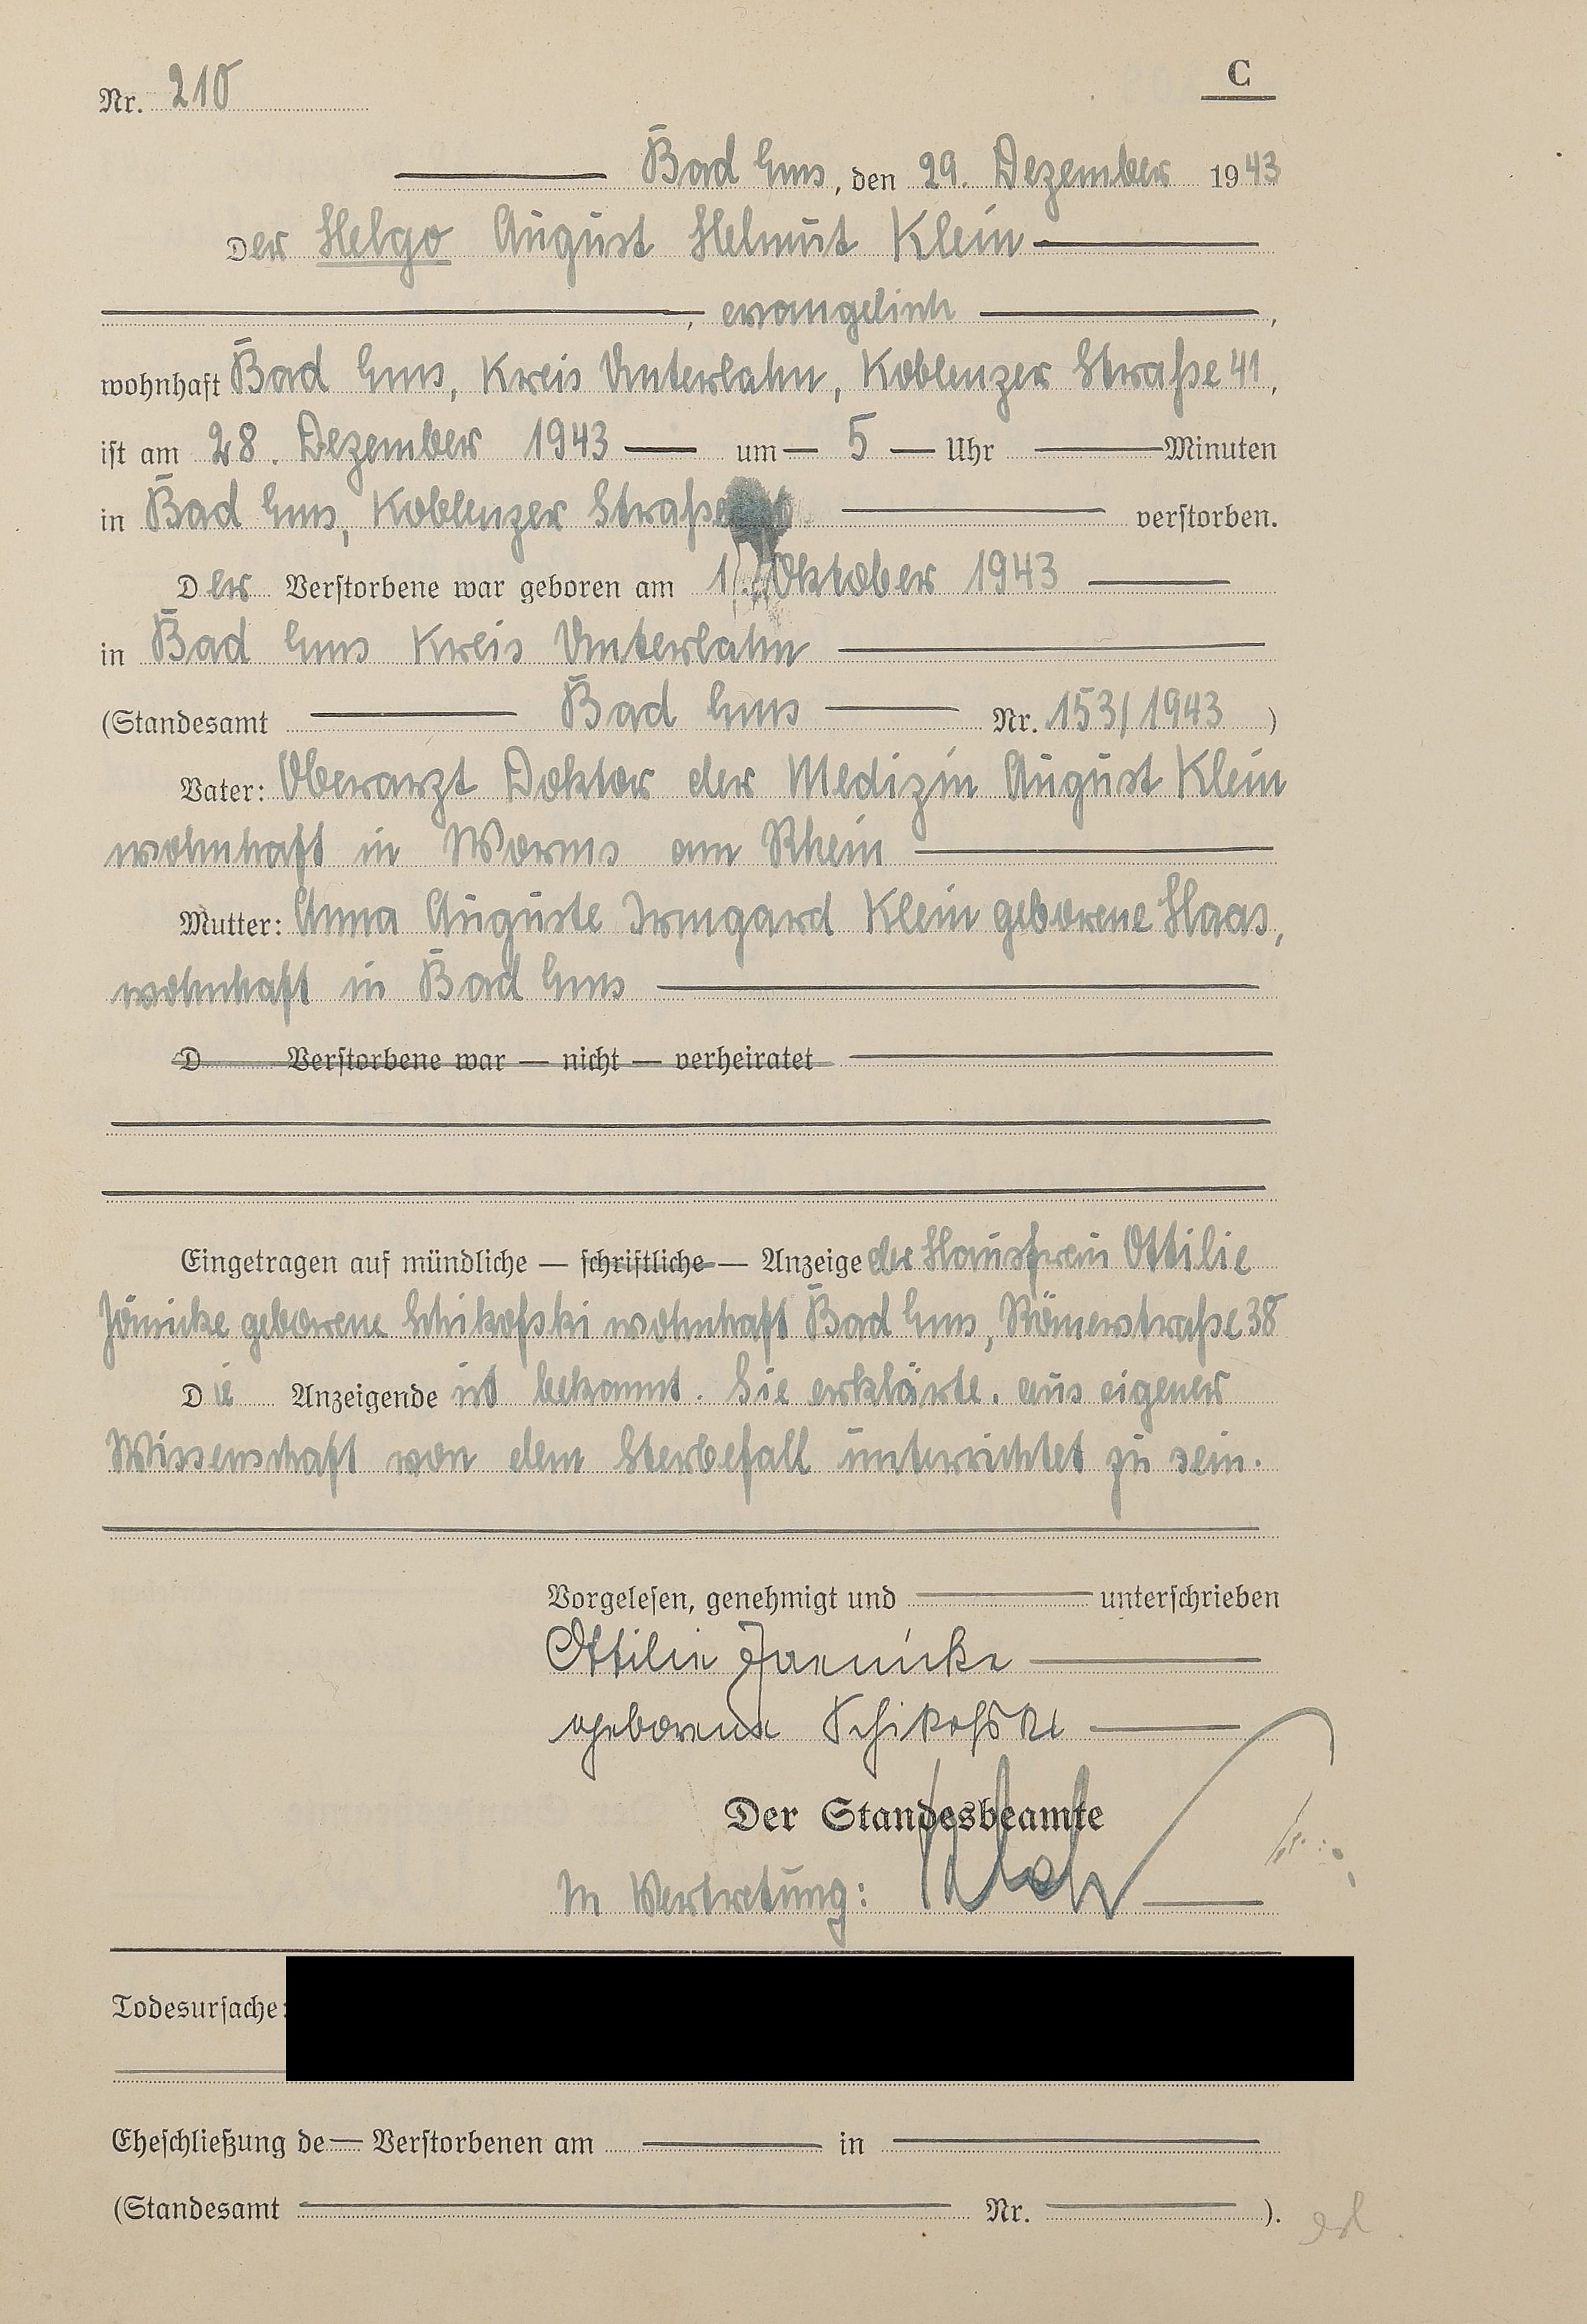 Nr. 210
C
Bad Ems, den 29. Dezember 1943
Der Helgo August Helmut Klein
, evangelisch ,
wohnhaft Bad Ems, Kreis Unterlahn, Koblenzer Straße 41,
ist am 28. Dezember 1943 — um — 5 — Uhr — Minuten
in Bad Ems, Koblenzer Straße verstorben.
Der Verstorbene war geboren am Oktober 1943
in Bad Ems Kreis Unterlahn
(Standesamt Bad Ems Nr. 153/1943 )
Vater: Oberarzt Doktor der Medizin August Klein
wohnhaft in Worms am Rhein
Mutter: Anna Auguste Irmgard Klein geborene Haas,
wohnhaft in Bad Ems
D Verstorbene war — nicht — verheiratet
Eingetragen auf mündliche — schriftliche — Anzeige der Hausfrau Ottilie
Jänicke geborene Schikofski wohnhaft Bad Ems, Römerstraße 38
Die Anzeigende ist bekannt. Sie erklärte, aus eigener
Wissenschaft von dem Sterbefall unterrichtet zu sein.
Vorgelesen, genehmigt und unterschrieben
Ottilie Jaenicke
geborene Schikofski
Der Standesbeamte
In Vertretung:
Todesursache:
Eheschließung de— Verstorbenen am — in
(Standesamt Nr. ).